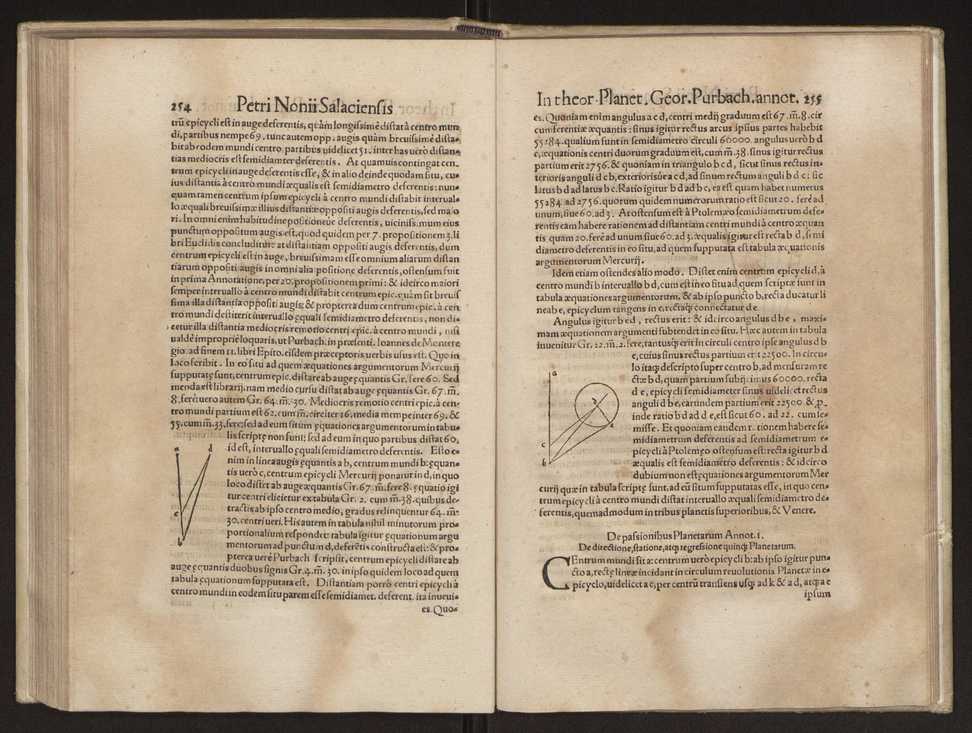 254 Petri Nonii Salaciensis
trũ epicycli est in auge deferentis, quàm longissimè distat à centro mun
di, partibus nempe 69. tunc autem opp. augis quàm breuissimè dista-
bit ab eodem mundi centro, partibus uidelicet 51. inter has uerò distan
tias mediocris est semidiameter deferentis. At quamuis contingat cen
trum epicycli in auge deferentis esse, & in alio deinde quodam situ, cu
ius distantia à centro mundi æqualis est semidiametro deferentis: nun-
quam tamen centrum ipsum epicycli à centro mundi distabit interual-
lo æquali breuissimæ illius distantiæ oppositi augis deferentis, sed maio
ri. In omni enim habitudine positioneue deferentis, uicinissimum eius
punctum oppositum augis est, quod quidem per 7. propositionem 3. li
bri Euclidis concluditur: at distantiam oppositi augis deferentis, dum
centrum epicycli est in auge, breuissimam esse omnium aliarum distan
tiarum oppositi augis in omni alia positione deferentis, ostensum fuit
in prima Annotatione, per 20. propositionem primi: & idcirco maiori
semper interuallo à centro mundi distabit centrum epic. quàm sit breuis
sima illa distantia oppositi augis: & propterea dum centrum epic. à cen
tro mundi destiterit interuallo ęquali semidiametro deferentis, non di-
cetur illa distantia mediocris remotio centri epic. à centro mundi, nisi
ualdè impropriè loquaris, ut Purbach. in præsenti. Ioannes de Monтere
gio. ad finem 11. libri Epito. eisdem præceptoris uerbis usus est. Quo in
loco scribit. In eo situ ad quem æquationes argumentorum Mercurij
supputatę sunt, centrum epic. distare ab auge ęquantis Gr. fere 60. Sed
menda est librarij, nam medio cursu distat ab auge ęquantis Gr. 67. m̃.
8. ferè uero autem Gr. 64. m̃. 30. Mediocris remotio centri epic. à cen
tro mundi partium est 62. cum m̃. circiter 16. media nempe inter 69. &
55. cum m̃. 33. ferè: sed ad eum situm ęquationes argumentorum in tabu-
lis scriptę non sunt: sed ad eum in quo partibus distat 60.
id est, interuallo ęquali semidiametri deferentis. Esto e-
nim in linea augis ęquantis a b, centrum mundi b: ęquan-
tis uerò c, centrum epicycli Mercurij ponatur in d, in quo
loco distet ab auge æquantis Gr. 67. m̃. fere 8. ęquatio igi
tur centri elicietur ex tabula Gr. 2. cum m̃. 38. quibus de-
tractis ab ipso centro medio, gradus relinquentur 64. m̃.
30. centri ueri. His autem in tabula nihil minutorum pro-
portionalium respondet: tabula igitur ęquationum argu
mentorum ad punctum d, deferẽtis constructa est: & pro-
pterea uerè Purbach scripsit, centrum epicycli distare ab
auge ęquantis duobus signis Gr. 4. m̃. 30. in ipso quidem loco ad quem
tabula ęquationum supputata est. Distantiam porrò centri epicycli à
centro mundi in eodem situ parem esse semidiamet. deferent. ita inueni-
es. Quo-
a d
c
b
In theor. Planet. Geor. Purbach. annot. 255
es. Quoniam enim angulus a c d, centri medij graduum est 67. m̃. 8. cir
cumferentiæ æquantis: sinus igitur rectus arcus ipsius partes habebit
55284. qualium sunt in semidiametro circuli 60000. angulus uerò b d
c, æquationis centri duorum graduum est, cum m̃. 38. sinus igitur rectus
partium erit 2756. & quoniam in triangulo b c d, sicut sinus rectus in-
terioris anguli d c b, exteriorisúe a c d, ad sinum rectum anguli b d c: sic
latus b d ad latus b c. Ratio igitur b d ad b c, ea est quam habet numerus
55284. ad 2756. quorum quidem numerorum ratio est sicut 20. ferè ad
unum, siue 60. ad 3. At ostensum est à Ptolemæo semidiametrum defe-
rentis eam habere rationem ad distantiam centri mundi à centro æquan
tis quam 20. ferè ad unum siue 60. ad 3. æqualis igitur est recta b d, semi
diametro deferentis in eo situ, ad quem supputata est tabula æquationis
argumentorum Mercurij.
Idem etiam ostendes alio modo. Distet enim centrum epicycli d, à
centro mundi b interuallo b d, cum est in eo situ ad quem scriptæ sunt in
tabula æquationes argumentorum, & ab ipso puncto b, recta ducatur li
nea b e, epicyclum tangens in e, rectaq́ꝫ connectatur d e.
Angulus igitur b e d, rectus erit: & idcirco angulus d b e, maxi-
mam æquationem argumenti subtendet in eo situ. Hæc autem in tabula
inuenitur Gr. 22. m̃. 2. fere, tantusq́ꝫ erit in circuli centro ipse angulus d b
e, cuius sinus rectus partium erit 22500. In circu-
lo itaq́ꝫ descripto super centro b, ad mensuram re
ctæ b d, quam partium subijcimus 60000. recta
d e, epicycli semidiameter sinus uidelicet rectus
anguli d b e, earundem partium erit 22500 & ꝓ-
inde ratio b d ad d e, est sicut 60. ad 22. cum se-
misse. Et quoniam eandem rationem habere se-
midiametrum deferentis ad semidiametrum e-
picycli à Ptolemęo ostensum est: recta igitur b d
æqualis est semidiametro deferentis: & idcirco
dubium non est, ęquationes argumentorum Mer
curij quæ in tabula scriptę sunt, ad eũ situm supputatas esse, in quo cen-
trum epicycli à centro mundi distat interuallo æquali semidiametro de-
ferentis, quemadmodum in tribus planetis superioribus, & Venere.
a
d
e
c
b
De passionibus Planetarum Annot. 1.
De directione, statione, atq́ꝫ regressione quinq́ꝫ Planetarum.
CEntrum mundi sit a: centrum uerò epicycli b: ab ipso igitur pun-
cto a, rectę lineæ incidant in circulum reuolutionis Planetæ in e-
picyclo, uidelicet a c, per centrũ transiens usq́ꝫ ad k & a d, atq́ꝫ a e
ipsum